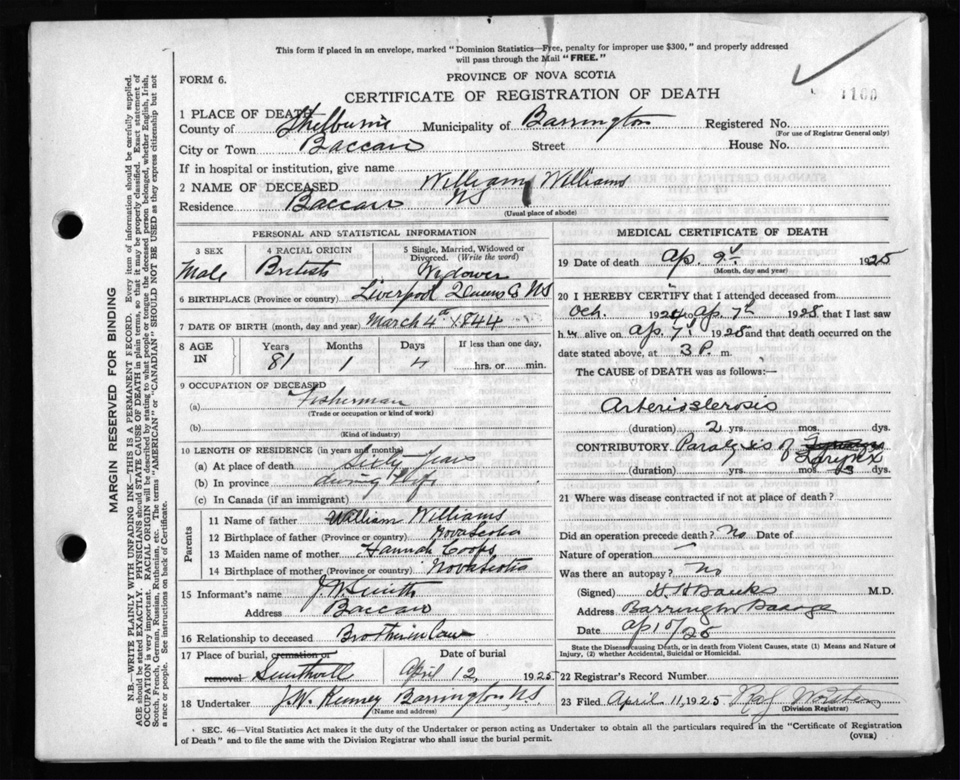 This form if placed in an envelope, marked "Dominion Statistics—Free, penalty for improper use $300," and properly addressed
will pass through the Mail "FREE."
FORM 6.
PROVINCE OF NOVA SCOTIA
CERTIFICATE OF REGISTRATION OF DEATH
1100
1 PLACE OF DEATH
County of Shelburne Municipality of Barrington Registered No.
(For use of Registrar General only)
City or Town Baccaro Street House No.
If in hospital or institution, give name
2 NAME OF DECEASED William Williams
Residence Baccaro NS
(Usual place of abode)
PERSONAL AND STATISTICAL INFORMATION
3 SEX 4 RACIAL ORIGIN 5 Single, Married, Widowed or Divorced. (Write the word)
Male British Widower
6 BIRTHPLACE (Province or country) Liverpool Queens Co NS
7 DATE OF BIRTH (month, day and year) March 4th 1844
8 AGE IN Years Months Days If less than one day,
81 1 4 hrs. or min.
9 OCCUPATION OF DECEASED
(a) Fisherman
(Trade or occupation or kind of work)
(b)
(Kind of industry)
10 LENGTH OF RESIDENCE (in years and months)
(a) At place of death Sixty Years
(b) In province during life
(c) In Canada (if an immigrant)
Parents
11 Name of father William Williams
12 Birthplace of father (Province or country) Nova Scotia
13 Maiden name of mother Hannah Coops
14 Birthplace of mother (Province or country) Nova Scotia
15 Informant's name J.W. Smith
Address Baccaro
16 Relationship to deceased Brother in law
17 Place of burial, cremation or removal Date of burial
Smithvill April 12, 1925
18 Undertaker J.W. Kenney Barrington, NS.
(Name and address)
MEDICAL CERTIFICATE OF DEATH
19 Date of death Ap. 9th 1925
(Month, day and year)
20 I HEREBY CERTIFY that I attended deceased from
Oct. 1924 to Ap. 7th 1925 that I last saw
him alive on Ap. 7th 1925 and that death occurred on the
date stated above, at 3 P. m.
The CAUSE of DEATH was as follows:—
Arteriosclerosis
(duration) 2 yrs. mos. dys.
CONTRIBUTORY Paralysis of
Larynx
(duration) yrs. mos. dys.
21 Where was disease contracted if not at place of death?
Did an operation precede death? No Date of
Nature of operation
Was there an autopsy? No
(Signed) H. H Banks M.D.
Address Barrington Passage
Date Ap 10/25
State the Disease causing Death, or in death from Violent Causes, state (1) Means and Nature of Injury, (2) whether Accidental, Suicidal or Homicidal.
22 Registrar's Record Number
23 Filed April 11, 1925
(Division Registrar)
SEC. 46—Vital Statistics Act makes it the duty of the Undertaker or person acting as Undertaker to obtain all the particulars required in the "Certificate of Registration
of Death" and to file the same with the Division Registrar who shall issue the burial permit.
(OVER)
MARGIN RESERVED FOR BINDING
N.B.—WRITE PLAINLY WITH UNFADING INK—THIS IS A PERMANENT RECORD. Every item of information should be carefully supplied.
AGE should be stated EXACTLY. PHYSICIANS should STATE CAUSE OF DEATH in plain terms, so that it may be properly classified. Exact statement of
OCCUPATION is very important. RACIAL ORIGIN will be described by stating to what people or tongue the deceased person belonged, whether English, Irish,
Scotch, French, German, Russian, Ruthenian, etc. The terms "AMERICAN" or "CANADIAN" SHOULD NOT BE USED as they express citizenship but not
a race or people. See instructions on back of Certificate.